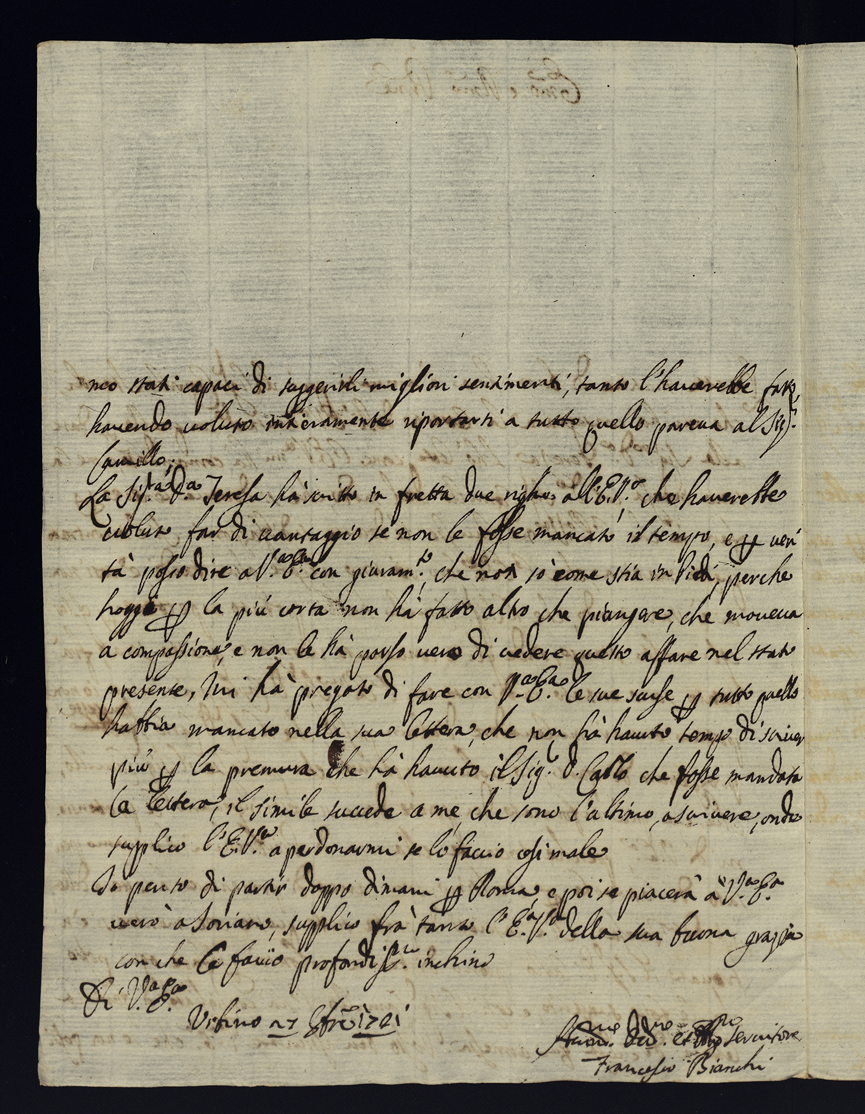 no stati capaci di suggerirli migliori sentimenti, tanto l'haverebbe fatto,
havendo voluto intieramente riportarsi a tutto quello pareva al Sig.r
Camillo.
La Sig.ra D.a Teresa hà scritto in fretta due righe all'E.V.a che haverebbe
voluto far di vantaggio se non le fosse mancato il tempo, e per veri
tà posso dire a V.a E.a con giuram.to che non sò come stia in vita, perche
hoggi per la più corta non hà fatto altro che piangere, che moveva
a compassione, e non le hà parso vero di vedere questo affare nel stato
presente, mi hà pregato di fare con V.a E.a le sue scuse per tutto quello
habbia mancato nella sua lettera, che non hà havuto tempo di scriver
più per la premura che hà havuto il Sig.r D. Carlo che fosse mandata
la lettera, il simile succede a me, che sono l'ultimo, a scrivere, onde
supplico l'E.V.a a perdonarmi se lo faccio così male
Io penso di partir doppo dimani per Roma, e poi se piacerà a V.a E.a
verrò a Soriano, supplico frà tanto l'E.a V.a della sua buona grazia
con che le faccio profondiss.mo inchino
Di V.a E.a
Urbino 27 1721
Hum.mo Dev.mo et servitore
Francesco Bianchi